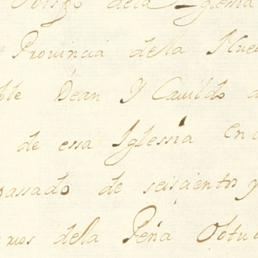 dela Iglesia
Provincia dela Nue
Dean Y Cavildo
de essa Iglessia en
passado de seiscientos y
dela Peña Octu